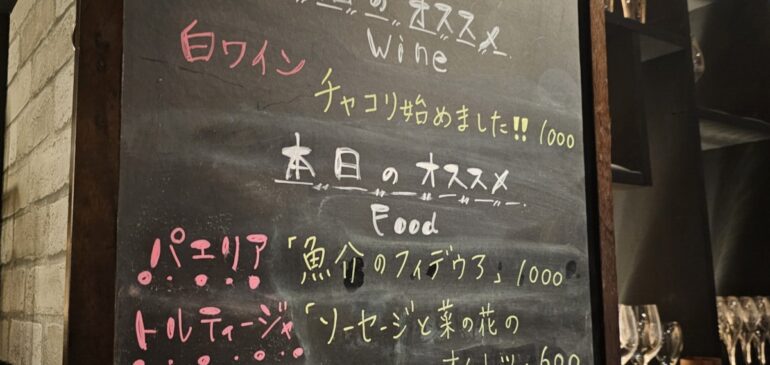 本日のオススメ
Wine
白ワイン
チャコリ始めました!! 1000
本日のオススメ
Food
パエリア「魚介のフィデウろ」1000
トルティージャ「ソーセージと菜の花の
600